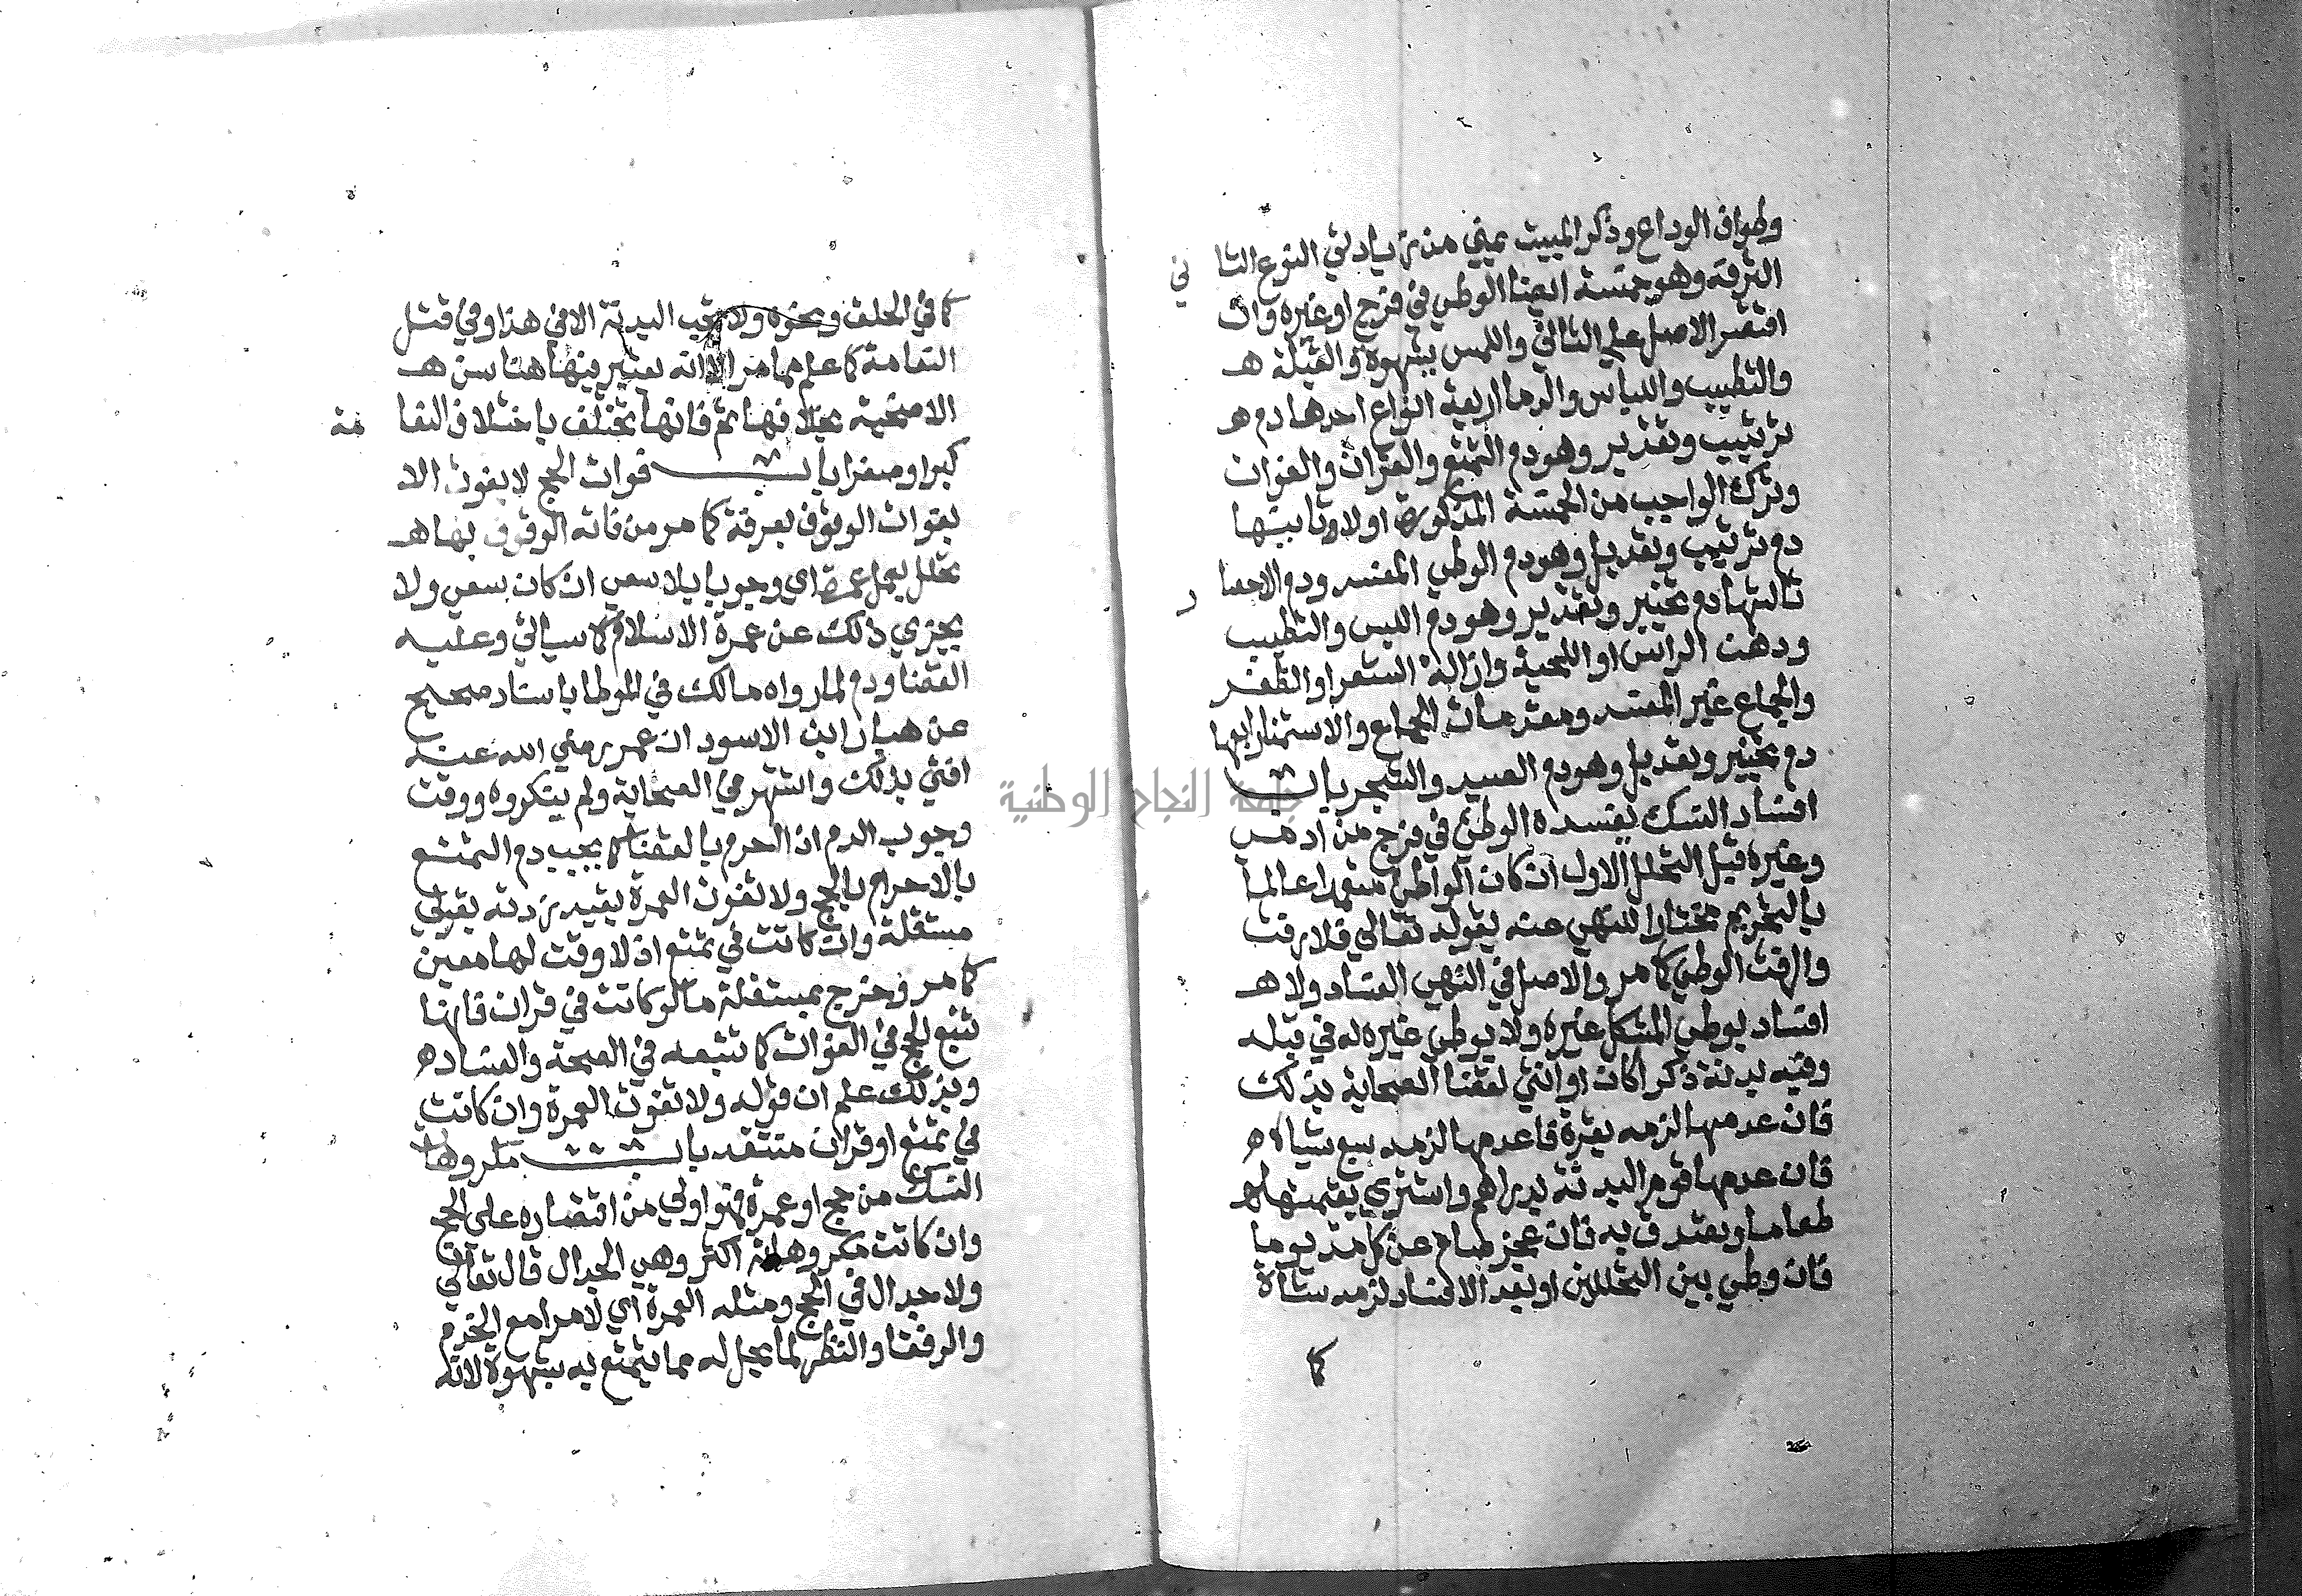 وطواف الوداع وذكر المبيت بمني من زيادتي النوع الثاني
الترفه وهو خمسة ايضا الوطي في فرج او غيره وان
اقتصر الاصل علي الثاني واللمس بشهوة والقبلة هـ
والتطيب واللباس والدما اربعة انواع احدها دم هـ
ترتيب وتقدير وهو دم التمتع والقران والفوات
وترك الواجب من الخمسة المذكورة اولا وثانيتها
دم ترتيب وتعديل وهو دم الوطي المفسد ودم الاحصار
ثالثها دم تخيير وتقدير وهو دم اللبس والتطيب
ودهن الراس او اللحية وازالة الشعر او الظفر
والجماع غير المفسد ومقدمات الجماع والاستمتنا رابعها
دم تخيير وتعديل وهو دم الصيد والشجر باب
افساد النسك يفسده الوطي في فرج من ادمي
وغيره قبل التحلل الاول ان كان الواطي متعمدا عالما
بالتحريم مختارا للنهي عنه بقوله تعالي فلا رفث
والرفث الوطي كما مر والاصل في النهي الفساد ولا هـ
افساد بوطي المشكل غيره ولا بوطي غيره له في قبله
وفيه بدنة ذكرا كان او انثي لقضا الصحابة بذلك
فان عدمها لزمه بقرة فاعدمها لزمه سبع شياه ه
فان عدمها قوم البدنة بدراهم واشتري بقيمتها هـ
طعاما وتصدق به فان عجز صام عن كل مد يوما
فان وطي بين التحللين او بعد الافساد لزمه شاة
كما
كما في الحلق ونحوه ولا تجب البدنة الا في هذا وفي قتل
النعامة كما علم مما مر الا انه يعتبر فيها هنا سن هـ
الاضحية بخلافها ثم فانها تختلف باختلاف النعامة
كبرا وصغرا باب فوات الحج لا يفوت الا
بفوات الوقوف بعرفة كما مر من فاته الوقوف بها هـ
تحلل بعمل عمرة اي وجوبا بلا سعي ان كان سعي ولا
يجزي ذلك عن عمرة الاسلام كما سياتي وعليه
القضا ودم لما رواه مالك في الموطا باسناد صحيح
عن هبار ابن الاسود ان عمر رضي الله عنه
افتي بذلك واشتهر في الصحابة ولم ينكروه ووقت
وجوب الدم اذا احرم بالقضا كما يجب دم التمتع
بالاحرام بالحج ولا تفوت العمرة بقيد زدته بقولي
مستقلة وان كانت في تمتع اذ لا وقت لها معين
كما مر وخرج بمستقلة ما لو كانت في قران فانها
تتبع الحج في الفوات كما تتبعه في الصحة والفساد ه
وبذلك علم ان قوله ولا تفوت العمرة وان كانت
في تمتع او قران منتقد باب مكروهات
النسك من حج او عمرة فهو اولي من اقتصاره علي الحج
وان كانت مكروهاته اكثر وهي الجدال قال تعالي
ولا جدال في الحج ومثله العمرة اي لا مرا مع الخدم
والرفقا والنظر لما يحل له مما يتمتع به بشهوة لانه
جامعة النجاح الوطنية